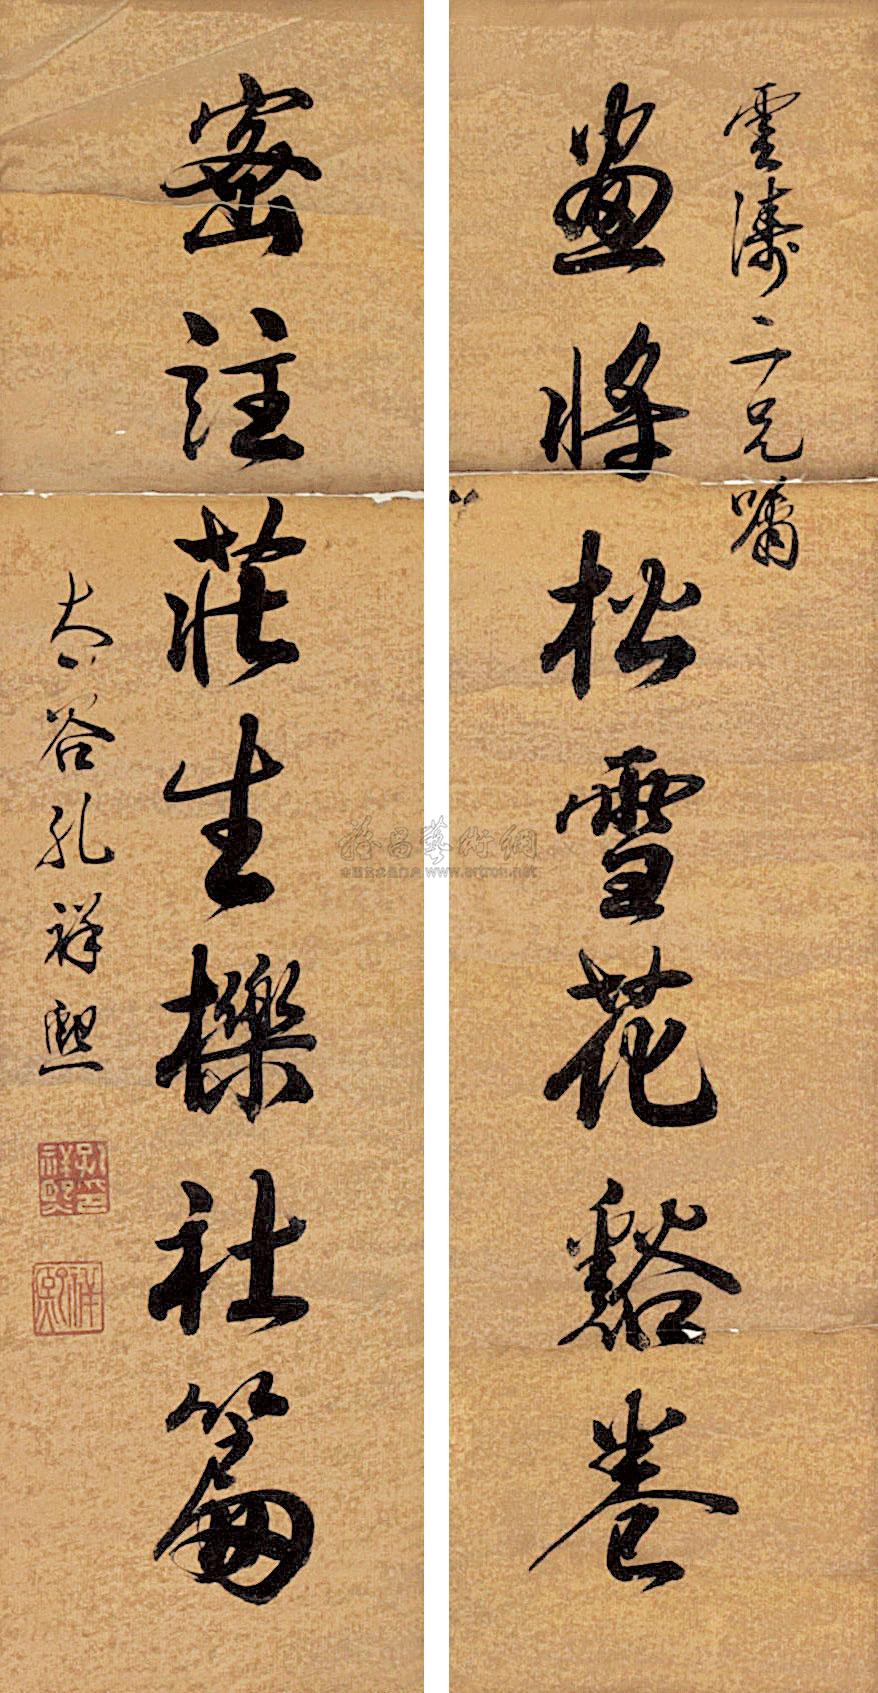 雲濤二兄囑
畫將松雪花谿卷
密註莊生櫟社篇
太谷孔祥熙
孔祥熙印
祥熙
雅昌藝術網
www.artron.net